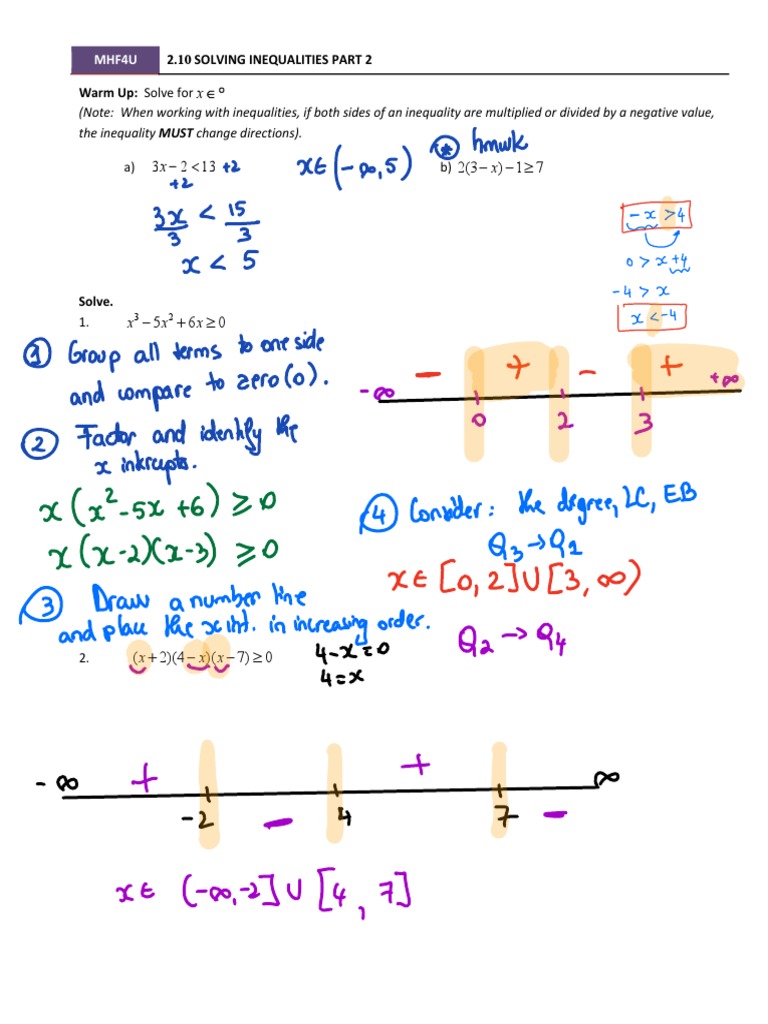 MHF4U 2.10 SOLVING INEQUALITIES PART 2
Warm Up: Solve for x ∈ °
(Note: When working with inequalities, if both sides of an inequality are multiplied or divided by a negative value,
the inequality MUST change directions).
a) 3x − 2 < 13 +2
+2
x ∈ (-∞, 5)
* hmwk
b) 2(3 − x) − 1 ≥ 7
3x/3 < 15/3
x < 5
-x > 4
0 > x +4
-4 > x
x < -4
Solve.
1. x³ − 5x² + 6x ≥ 0
① Group all terms to one side
and compare to zero (0).
- + - +
-∞ +∞
0 2 3
② Factor and identify the
x intercepts.
x(x² -5x +6) ≥ 0
x(x-2)(x-3) ≥ 0
④ Consider: the degree, LC, EB
Q3 → Q1
x ∈ [0, 2] ∪ [3, ∞)
③ Draw a number line
and place the x int. in increasing order.
Q2 → Q4
2. (x + 2)(4 − x)(x − 7) ≥ 0
4-x = 0
4 = x
+ +
-∞ ∞
-2 - 4 7 -
x ∈ (-∞, -2] ∪ [4, 7]